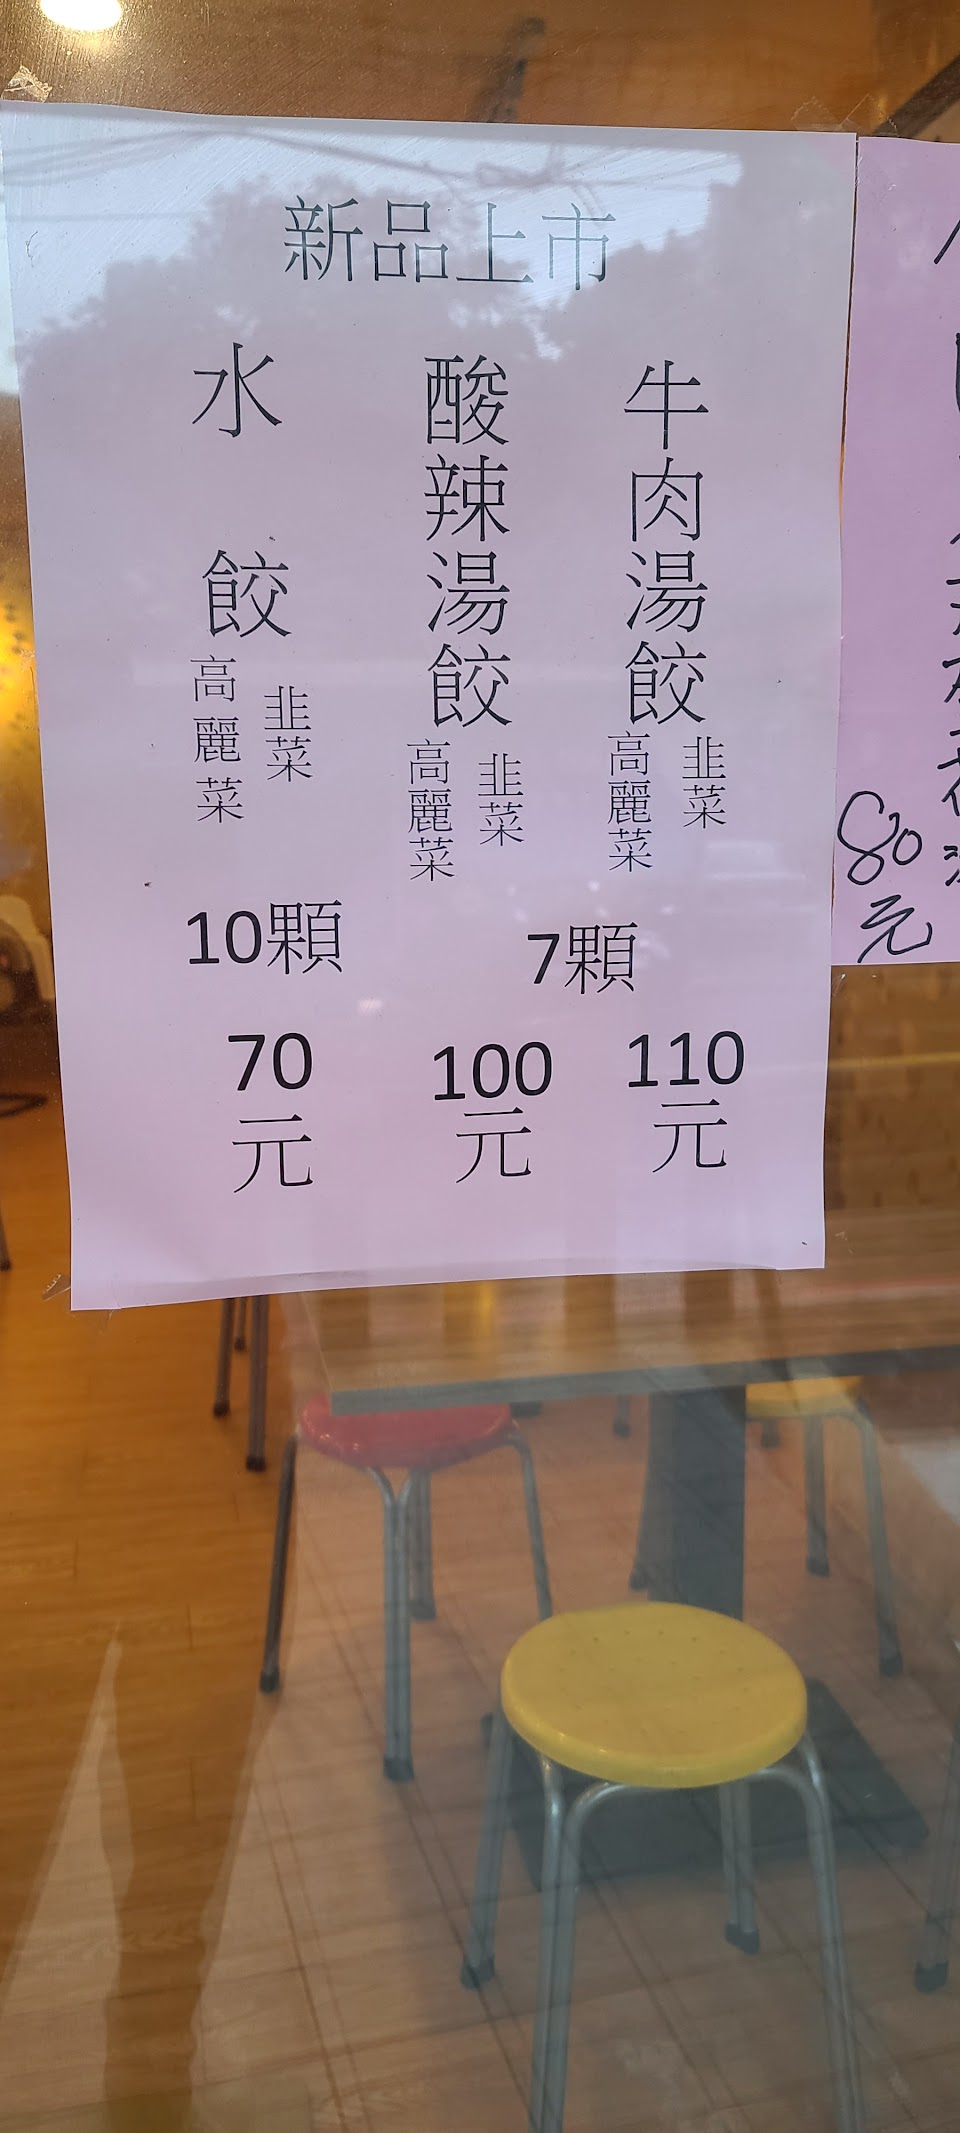 新品上市
牛肉湯餃
韭菜
高麗菜
酸辣湯餃
韭菜
高麗菜
水餃
韭菜
高麗菜
10顆
7顆
70元
100元
110元
80元